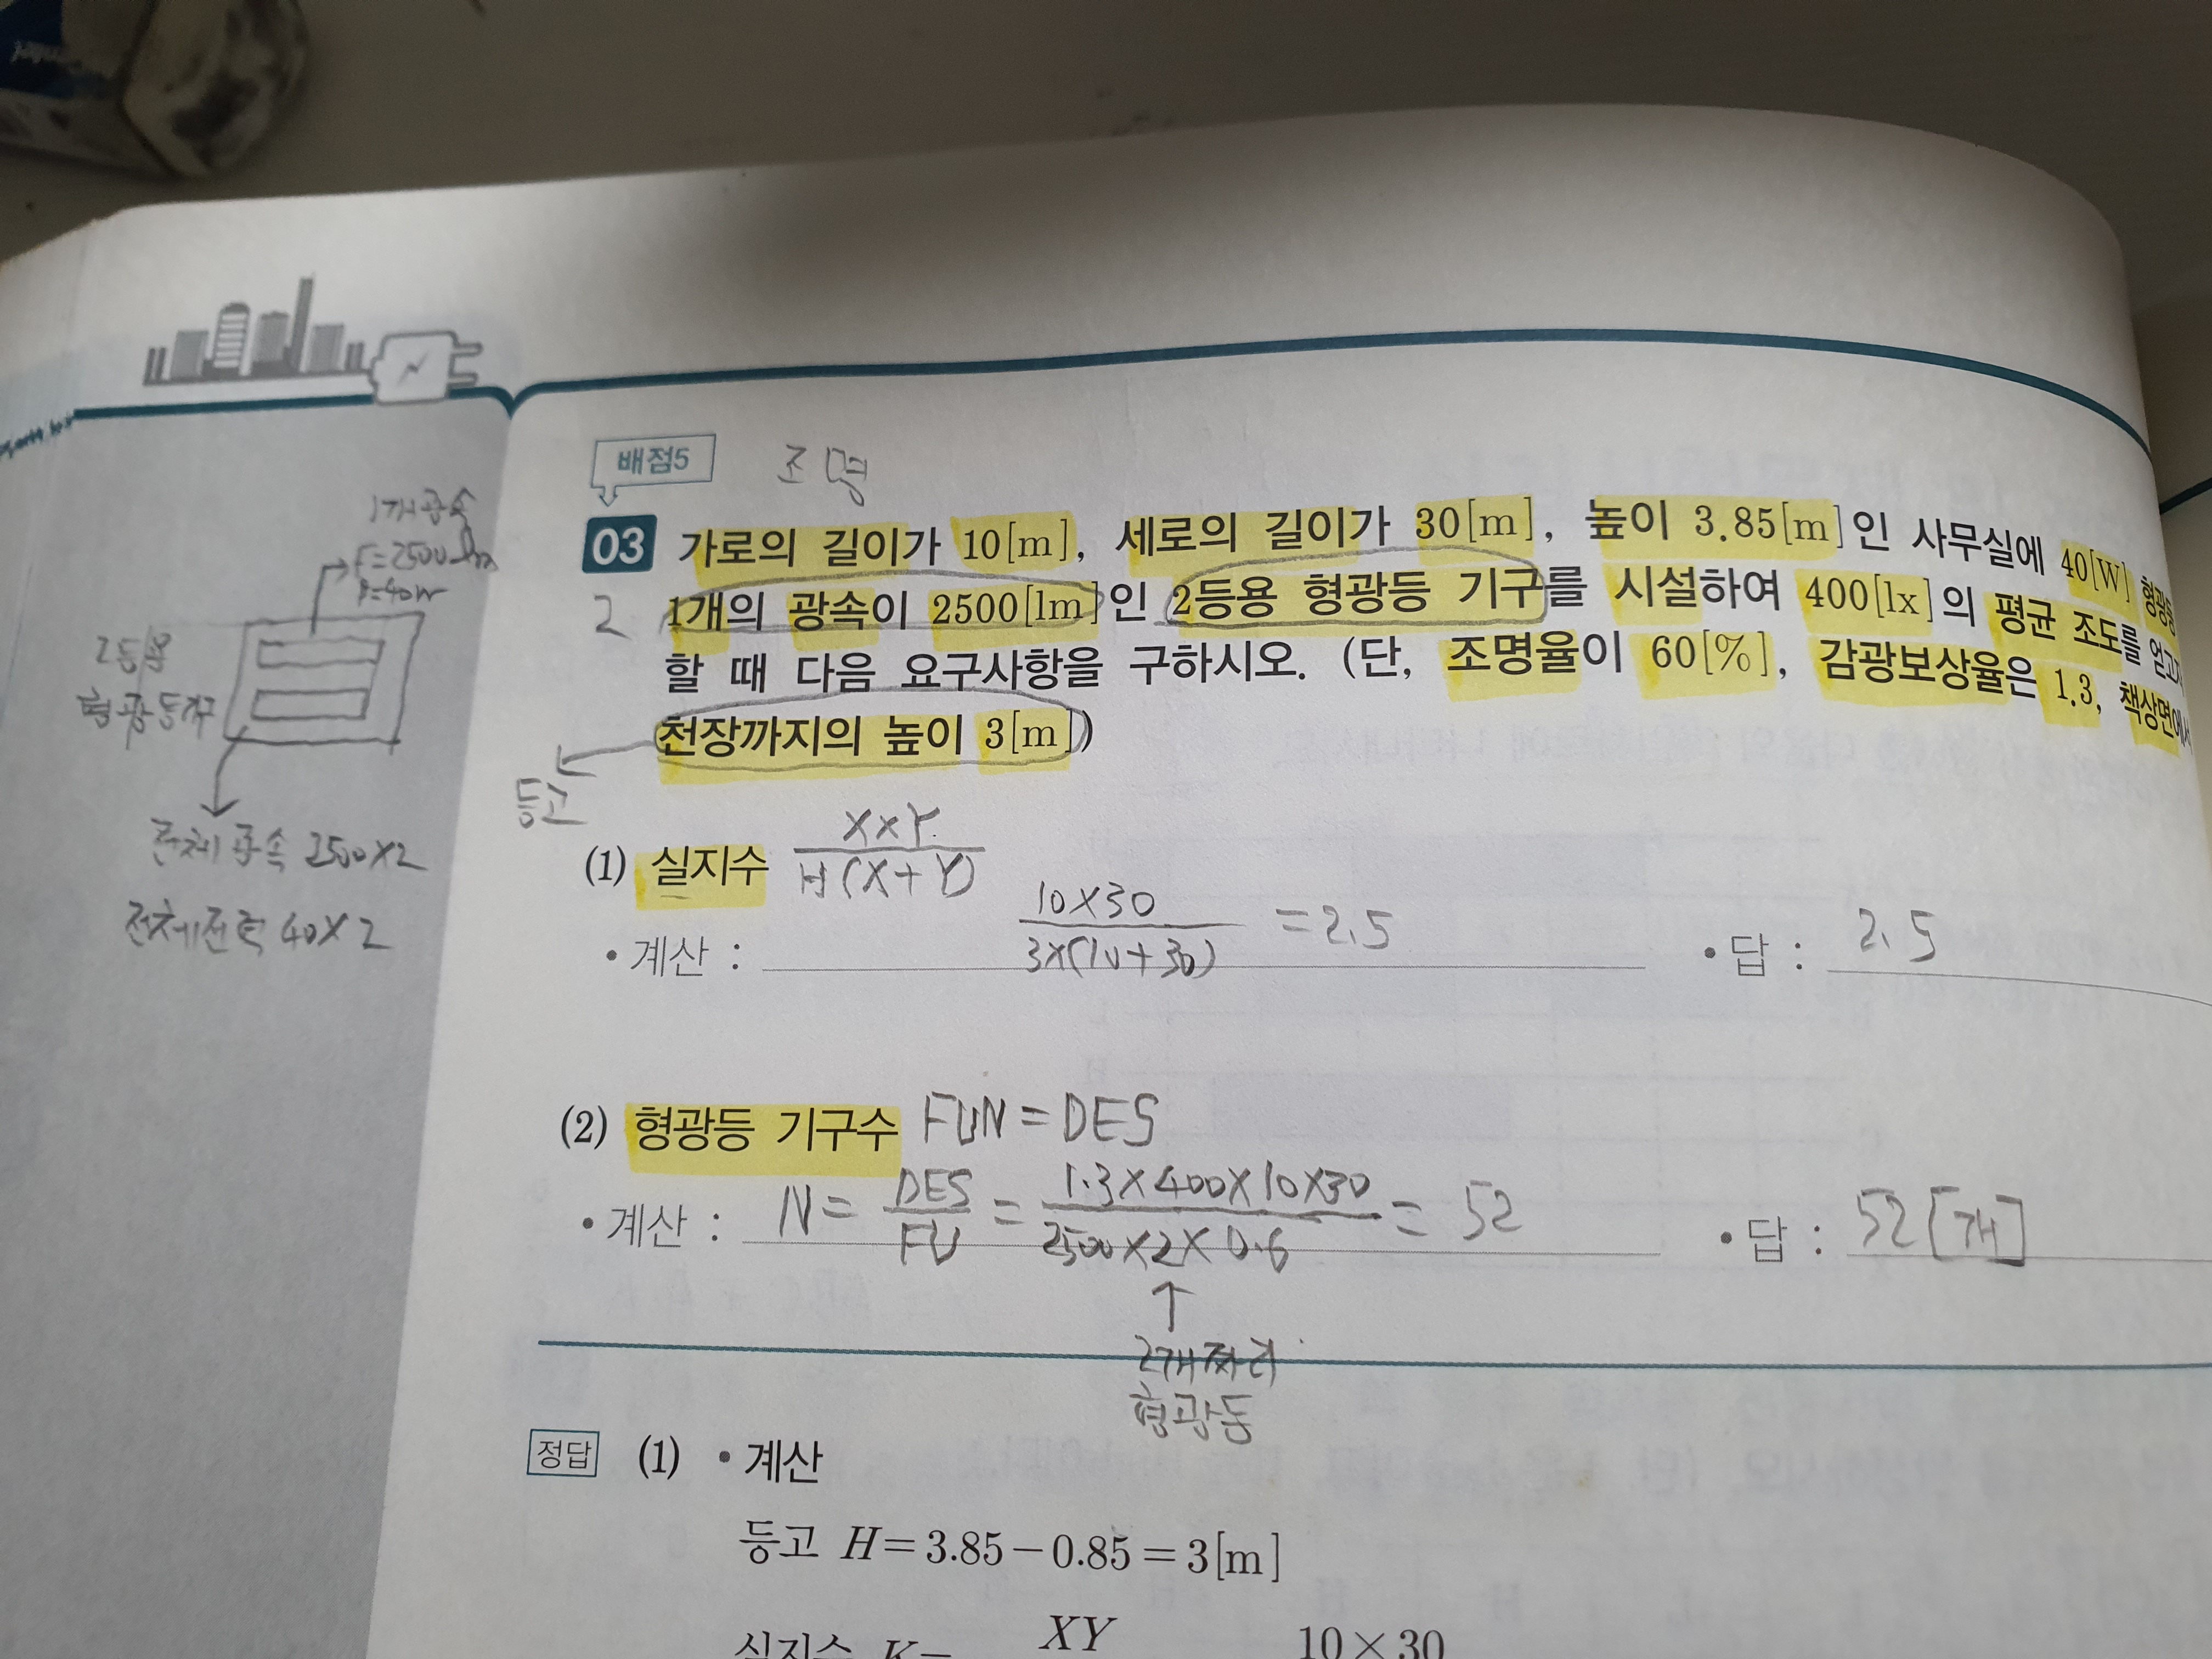 배점5 조명
1개 광속
F=2500lm
P=40W
2등용
형광등기구
전체 광속 2500×2
전체전력 40×2
03 가로의 길이가 10[m], 세로의 길이가 30[m], 높이 3.85[m]인 사무실에 40[W] 형광등
2 1개의 광속이 2500[lm]인 2등용 형광등 기구를 시설하여 400[lx]의 평균 조도를 얻고자
할 때 다음 요구사항을 구하시오. (단, 조명율이 60[%], 감광보상율은 1.3, 책상면에서
천장까지의 높이 3[m])
등고
(1) 실지수 X×Y / H(X+Y)
• 계산 : 10×30 / 3×(10+30) =2.5 • 답 : 2.5
(2) 형광등 기구수 FUN=DES
• 계산 : N= DES / FU = 1.3×400×10×30 / 2500×2×0.6 = 52 • 답 : 52[개]
↑
2개짜리
형광등
정답 (1) • 계산
등고 H=3.85-0.85=3[m]
실지수 K= XY 10×30